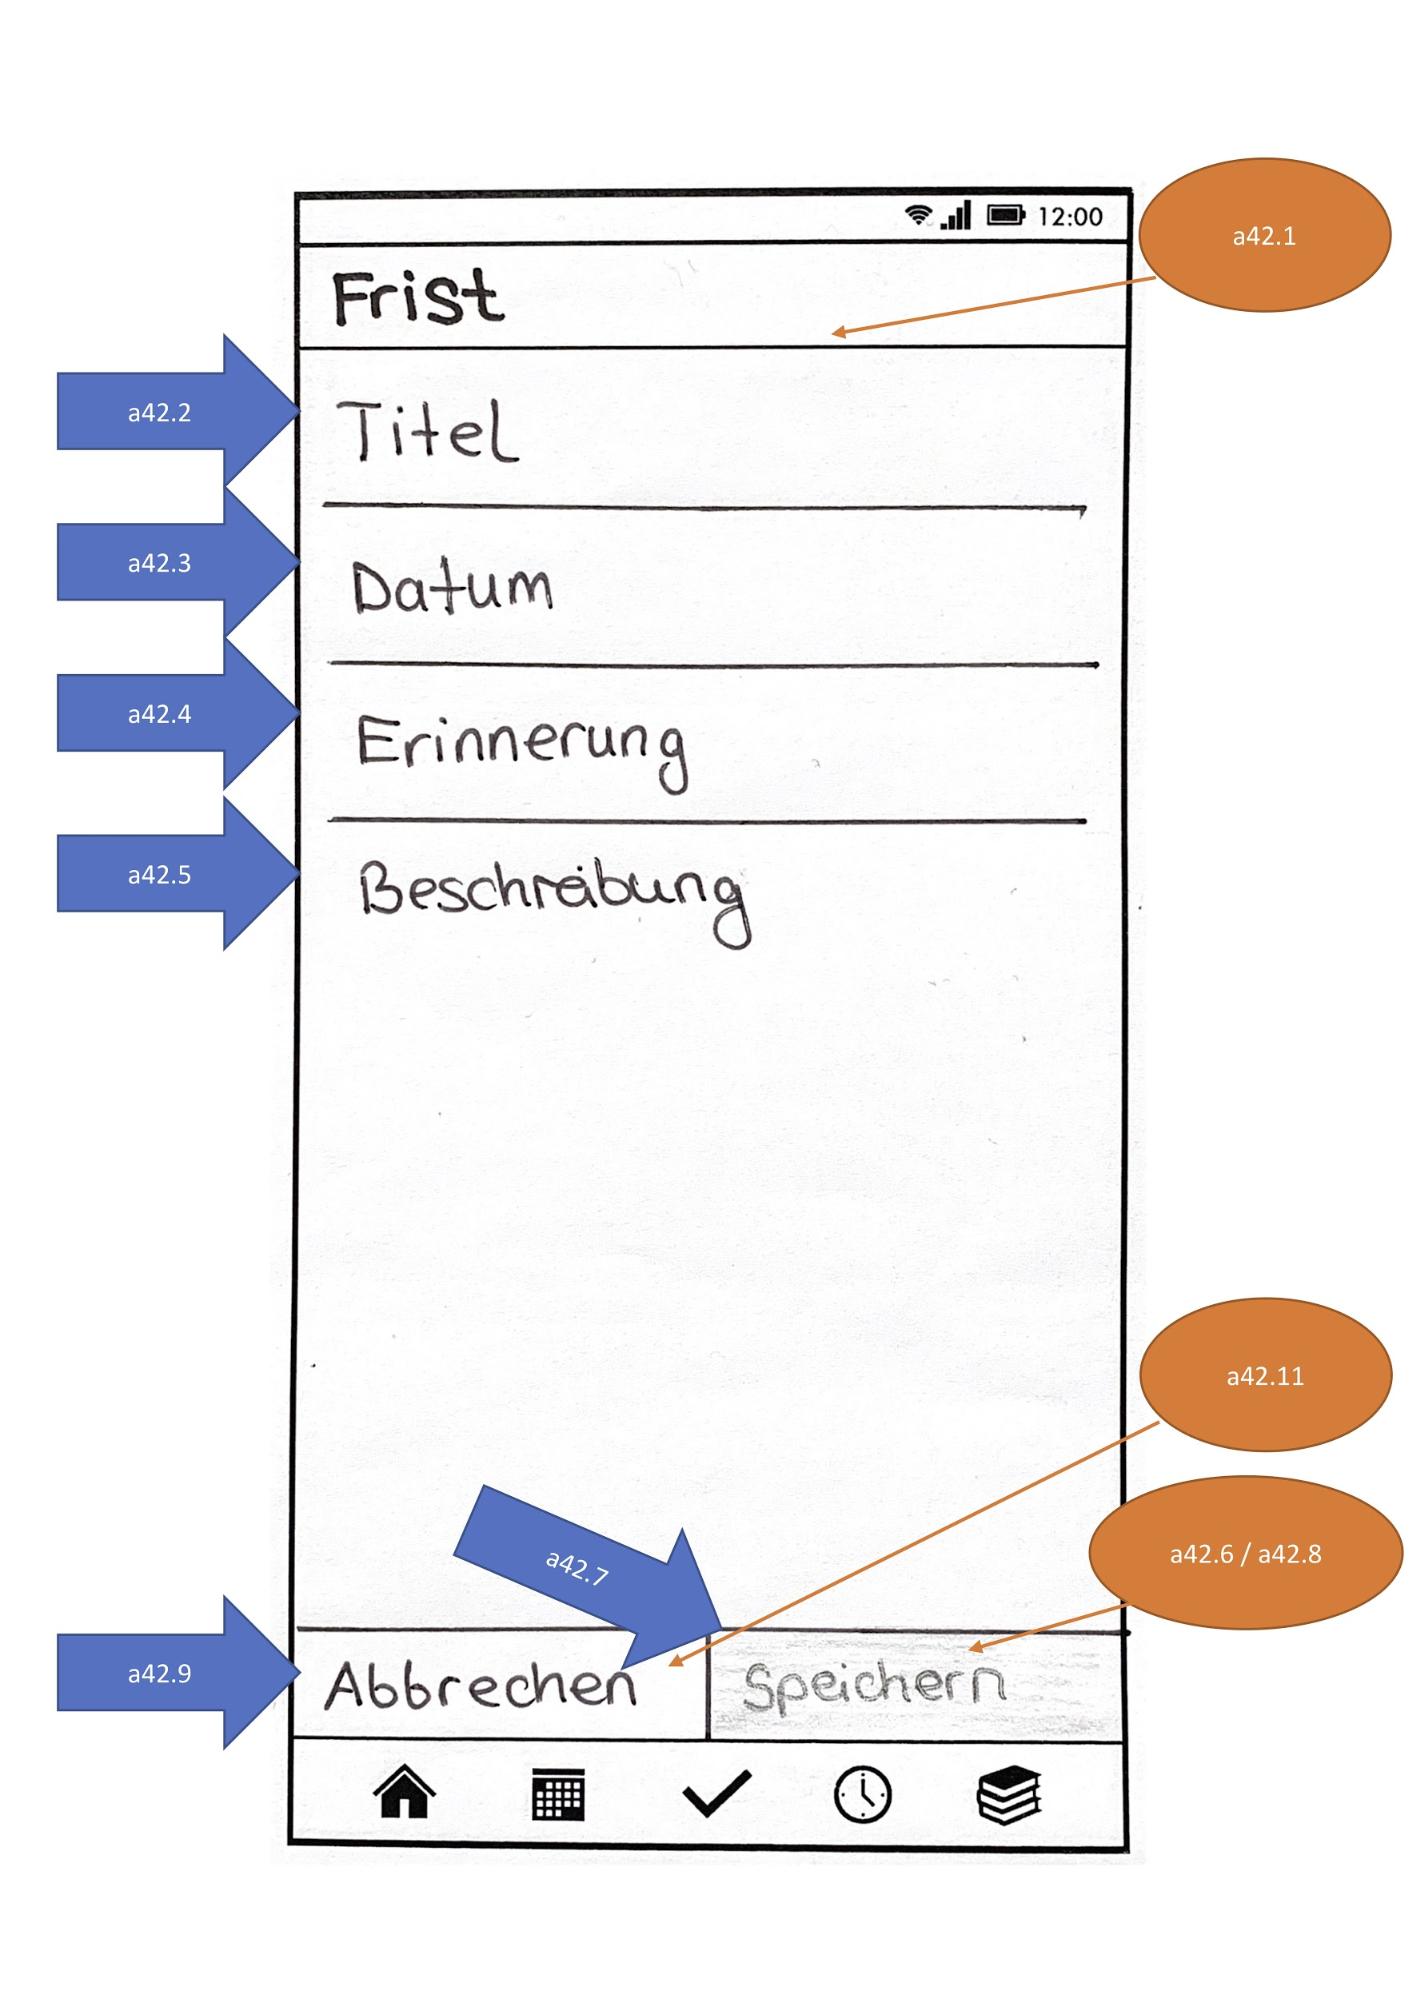 12:00
a42.1
Frist
a42.2
Titel
a42.3
Datum
a42.4
Erinnerung
a42.5
Beschreibung
a42.11
a42.7
a42.6 / a42.8
a42.9
Abbrechen
Speichern